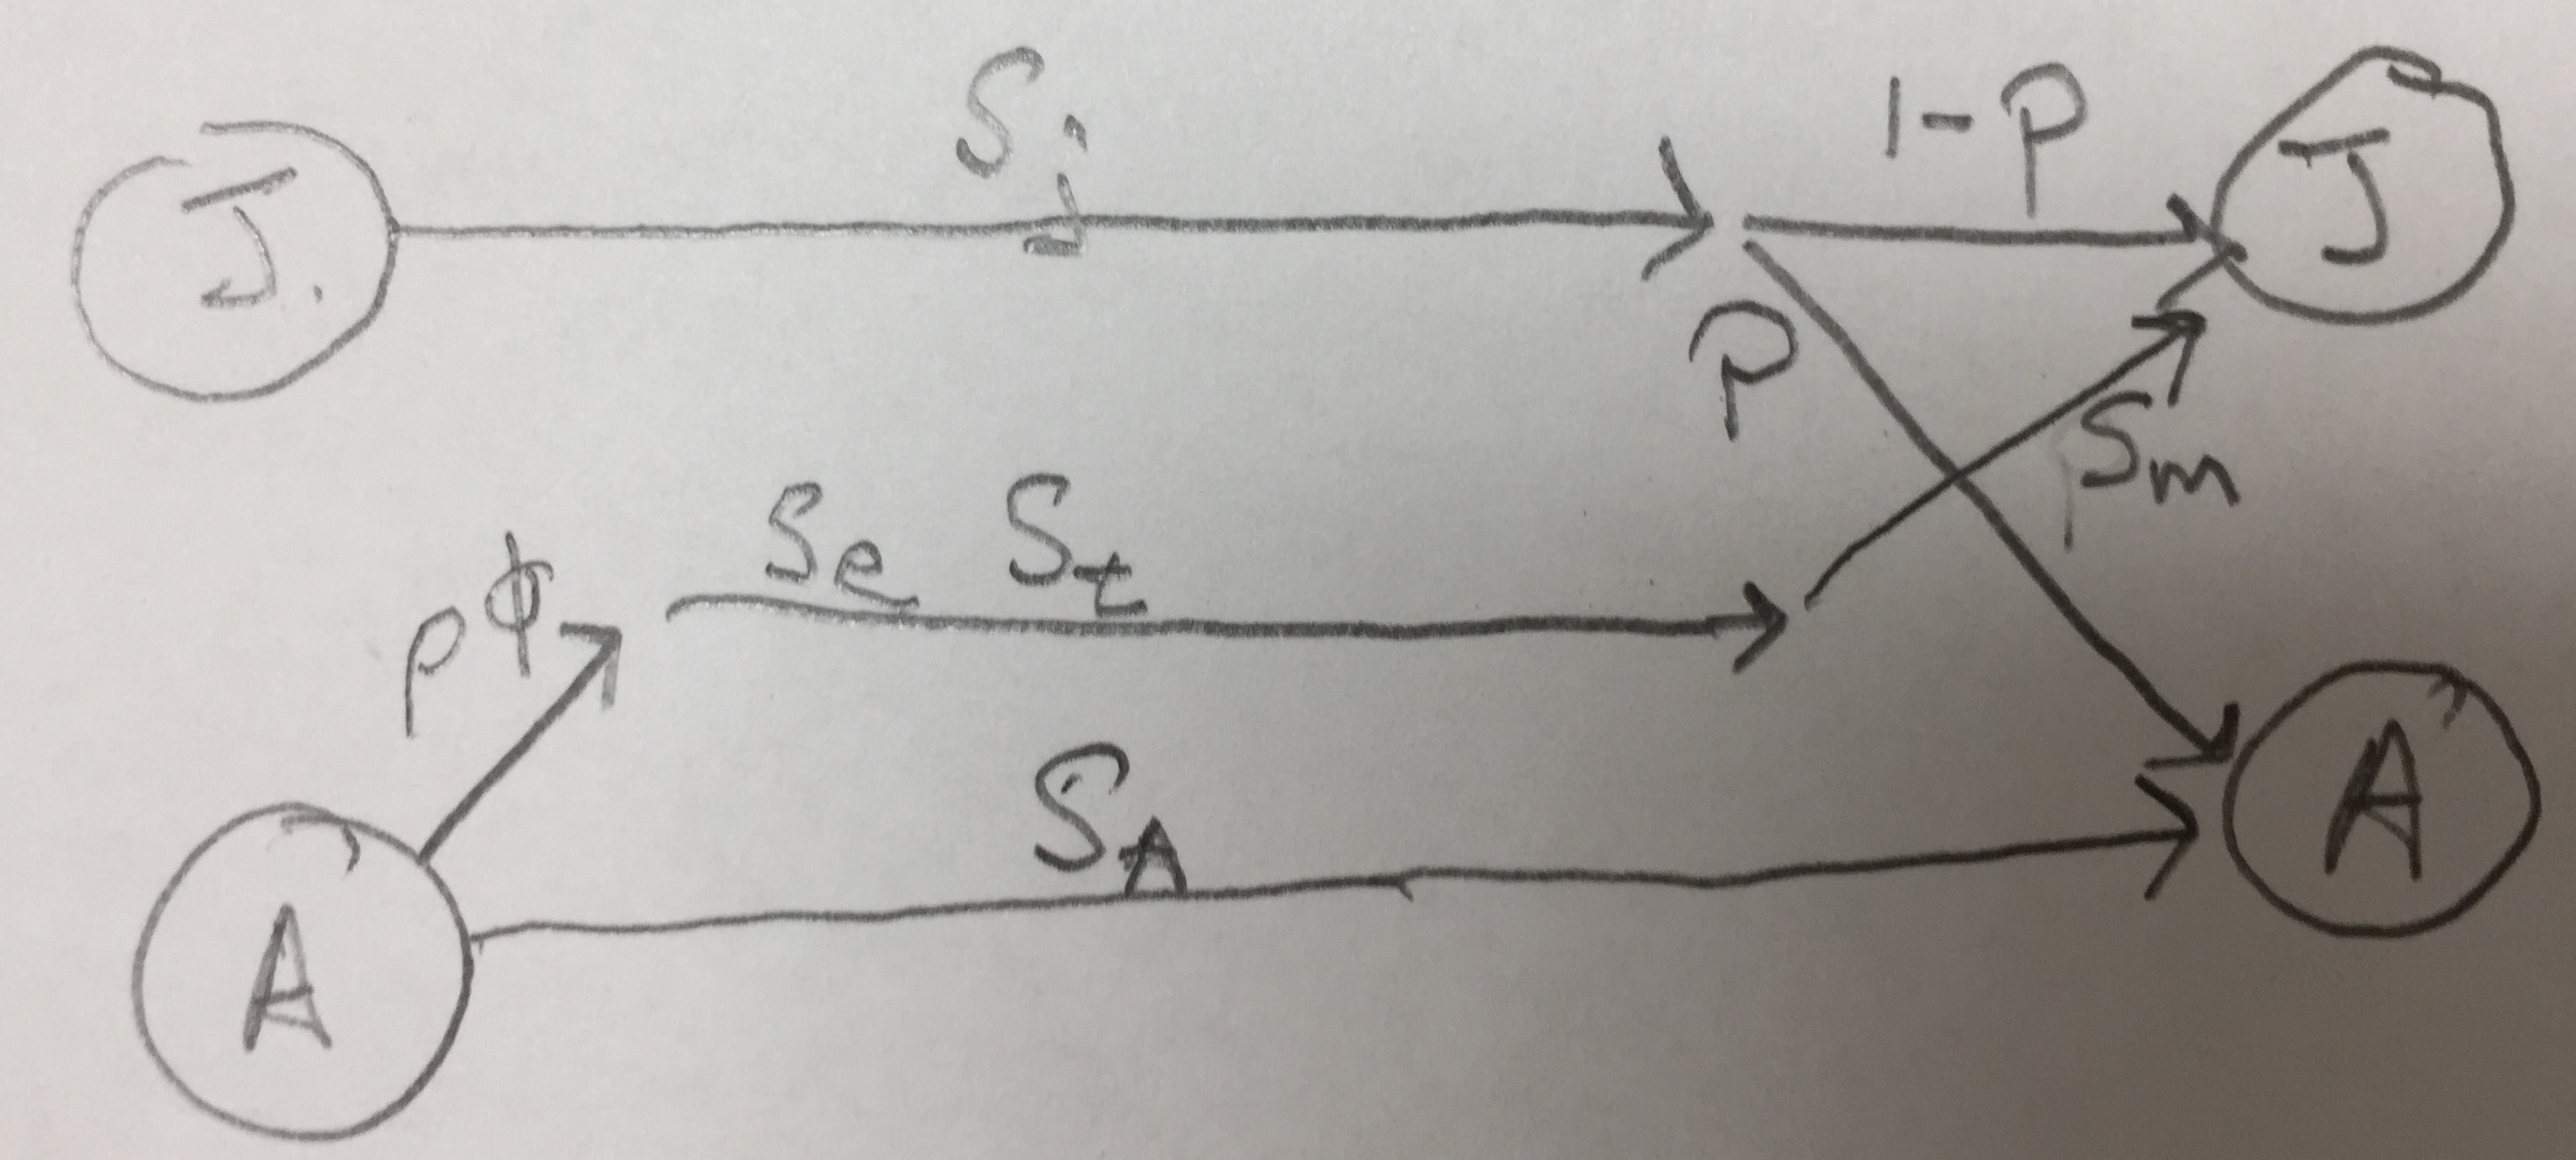 S_j
1-P
J.
J
P
S_m
S_e S_t
ρϕ
S_A
A
A